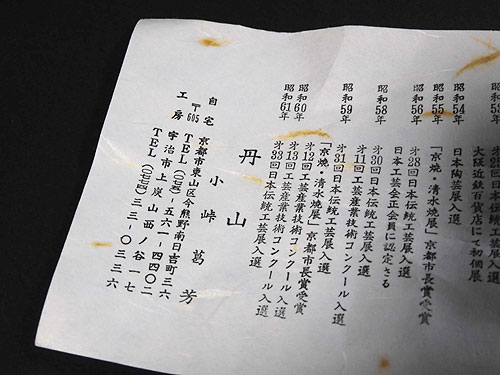 昭和54年
日本陶芸展入選
大阪近鉄百貨店にて初個展
昭和55年
「京焼・清水焼展」京都市長賞受賞
昭和56年
才28回日本伝統工芸展入選
日本工芸会正会員に認定さる
昭和58年
才30回日本伝統工芸展入選
才11回工芸産業技術コンクール入選
昭和59年
才31回日本伝統工芸展入選
「京焼・清水焼展」京都市長賞受賞
昭和60年
才12回工芸産業技術コンクール入選
才13回工芸産業技術コンクール入選
昭和61年
才33回日本伝統工芸展入選
丹山
小峠葛芳
自宅 〒605 京都市東山区今熊野南日吉町三六
TEL(075)五六一-四四〇二
工房 宇治市上炭山西ノ谷一七
TEL(0774)三三-〇三三六